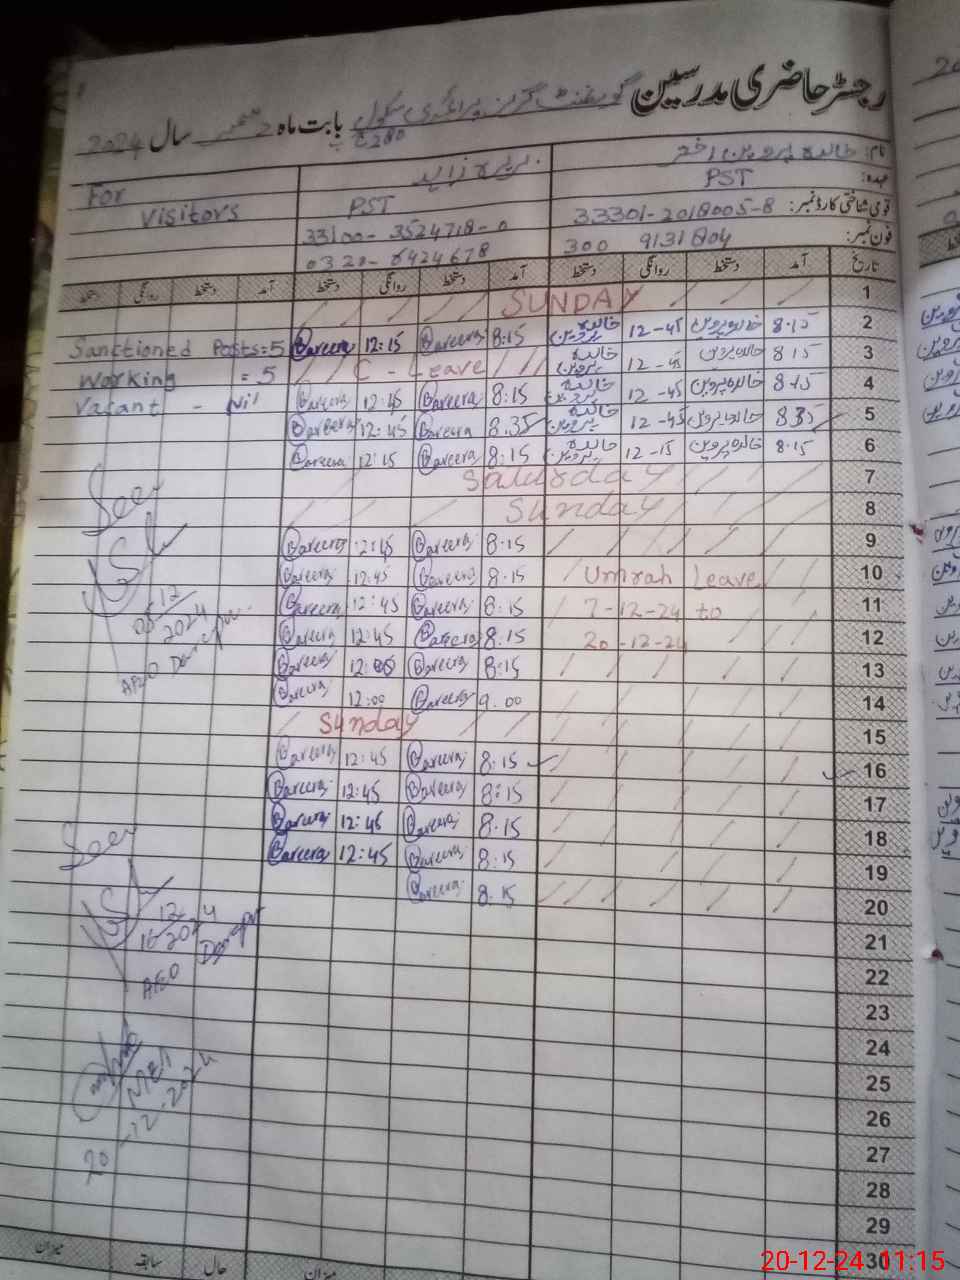 رجسٹر حاضری مدرسین گورنمنٹ گرلز پرائمری سکول بابت ماہ دسمبر سال 2024
C 280
نام: خالدہ پروین اختر
عہدہ: PST
قومی شناختی کارڈ نمبر: 33301-2018005-8
فون نمبر: 300 9131804
بریرہ زاہد
PST
33100-3524718-0
0320-8424678
For
Visitors
تاریخ آمد دستخط روانگی دستخط آمد دستخط روانگی دستخط آمد دستخط روانگی دستخط
1 SUNDAY
2 8.15 خالدہ پروین 12-45 خالدہ پروین 8:15 Bareera 12:15 Bareera
Sanctioned Posts=5
3 8 15 خالدہ پروین 12-45 خالدہ پروین C-Leave
Working = 5
4 8.15 خالدہ پروین 12-45 خالدہ پروین 8:15 Bareera 12:45 Bareera
Vacant - Nil
5 8 35 خالدہ پروین 12-45 خالدہ پروین 8.35 Bareera 12:45 Bareera
6 8.15 خالدہ پروین 12-15 خالدہ پروین 8:15 Bareera 12:15 Bareera
7 Saturday
8 Sunday
9 8:15 Bareera 12:45 Bareera
10 Umrah Leave 8:15 Bareera 12:45 Bareera
11 7-12-24 to 8:15 Bareera 12:45 Bareera
12 20-12-24 8:15 Bareera 12:45 Bareera
13 8:15 Bareera Bareera
14 9.00 Bareera 12:00 Bareera
15 Sunday
16 8:15 Bareera 12:45 Bareera
17 8:15 Bareera 12:45 Bareera
18 8:15 Bareera 12:45 Bareera
19 8:15 Bareera 12:45 Bareera
20 8.15 Bareera
21
22
23
24
25
26
27
28
29
30
Seen
05 12
2024
AEO
Seen
16 12
2024
AEO
MEA
20-12-2024
میزان سابقہ حال میزان
20-12-24 11:15